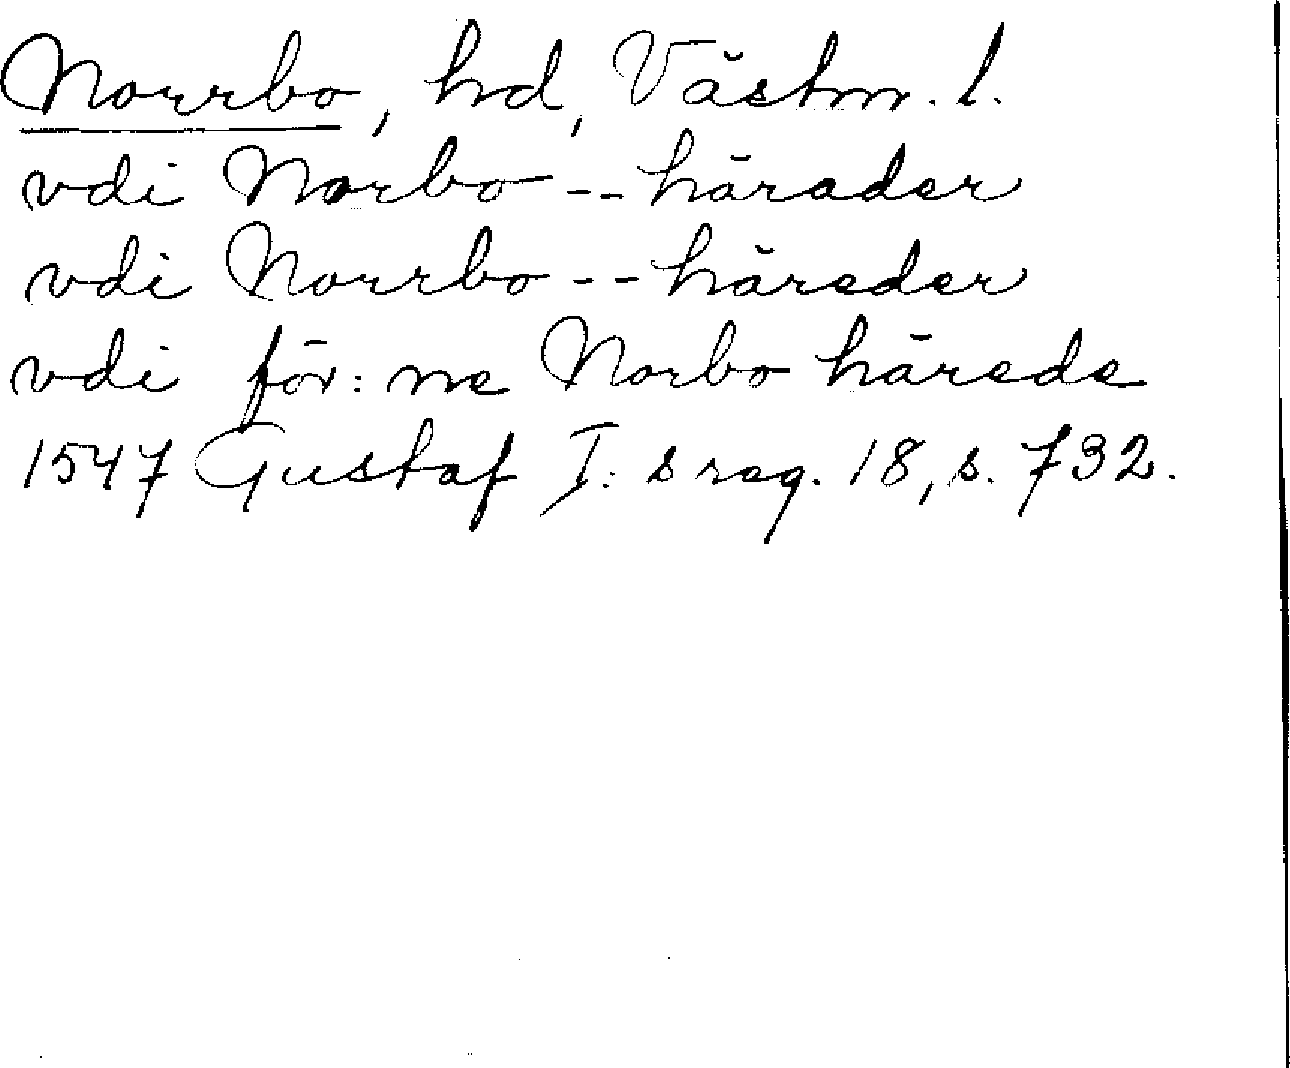 Norrbo, hd, Västm. l.
vdi Norbo -- härader
vdi Norrbo -- häreder
vdi för: ne Norbo härede
1547 Gustaf I: s reg. 18, s. 732.